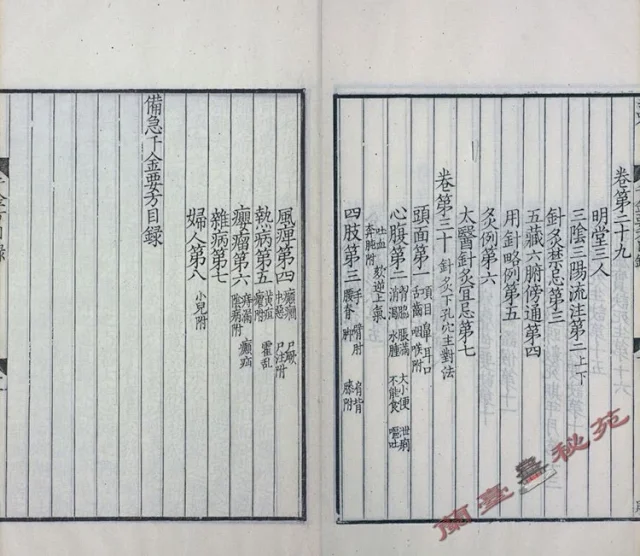 卷第二十九
明堂三人
三陰三陽流注第二上下
針灸禁忌第三
五藏六腑傍通第四
用針略例第五
灸例第六
太醫針灸宜忌第七
卷第三十 針灸下孔穴主對法
頭面第一 項目鼻耳口舌齒咽喉附
心腹第二 胃腸脹滿大小便泄痢消渴水腫不能食嘔吐吐血欬逆上氣奔肫附
四肢第三 手臂肩背腰脊脚膝附
風痹第四
熱病第五 黃疸霍乱瘧附
癭瘤第六
雜病第七
婦人第八 小兒附
備急千金要方目録
蘭臺秘苑